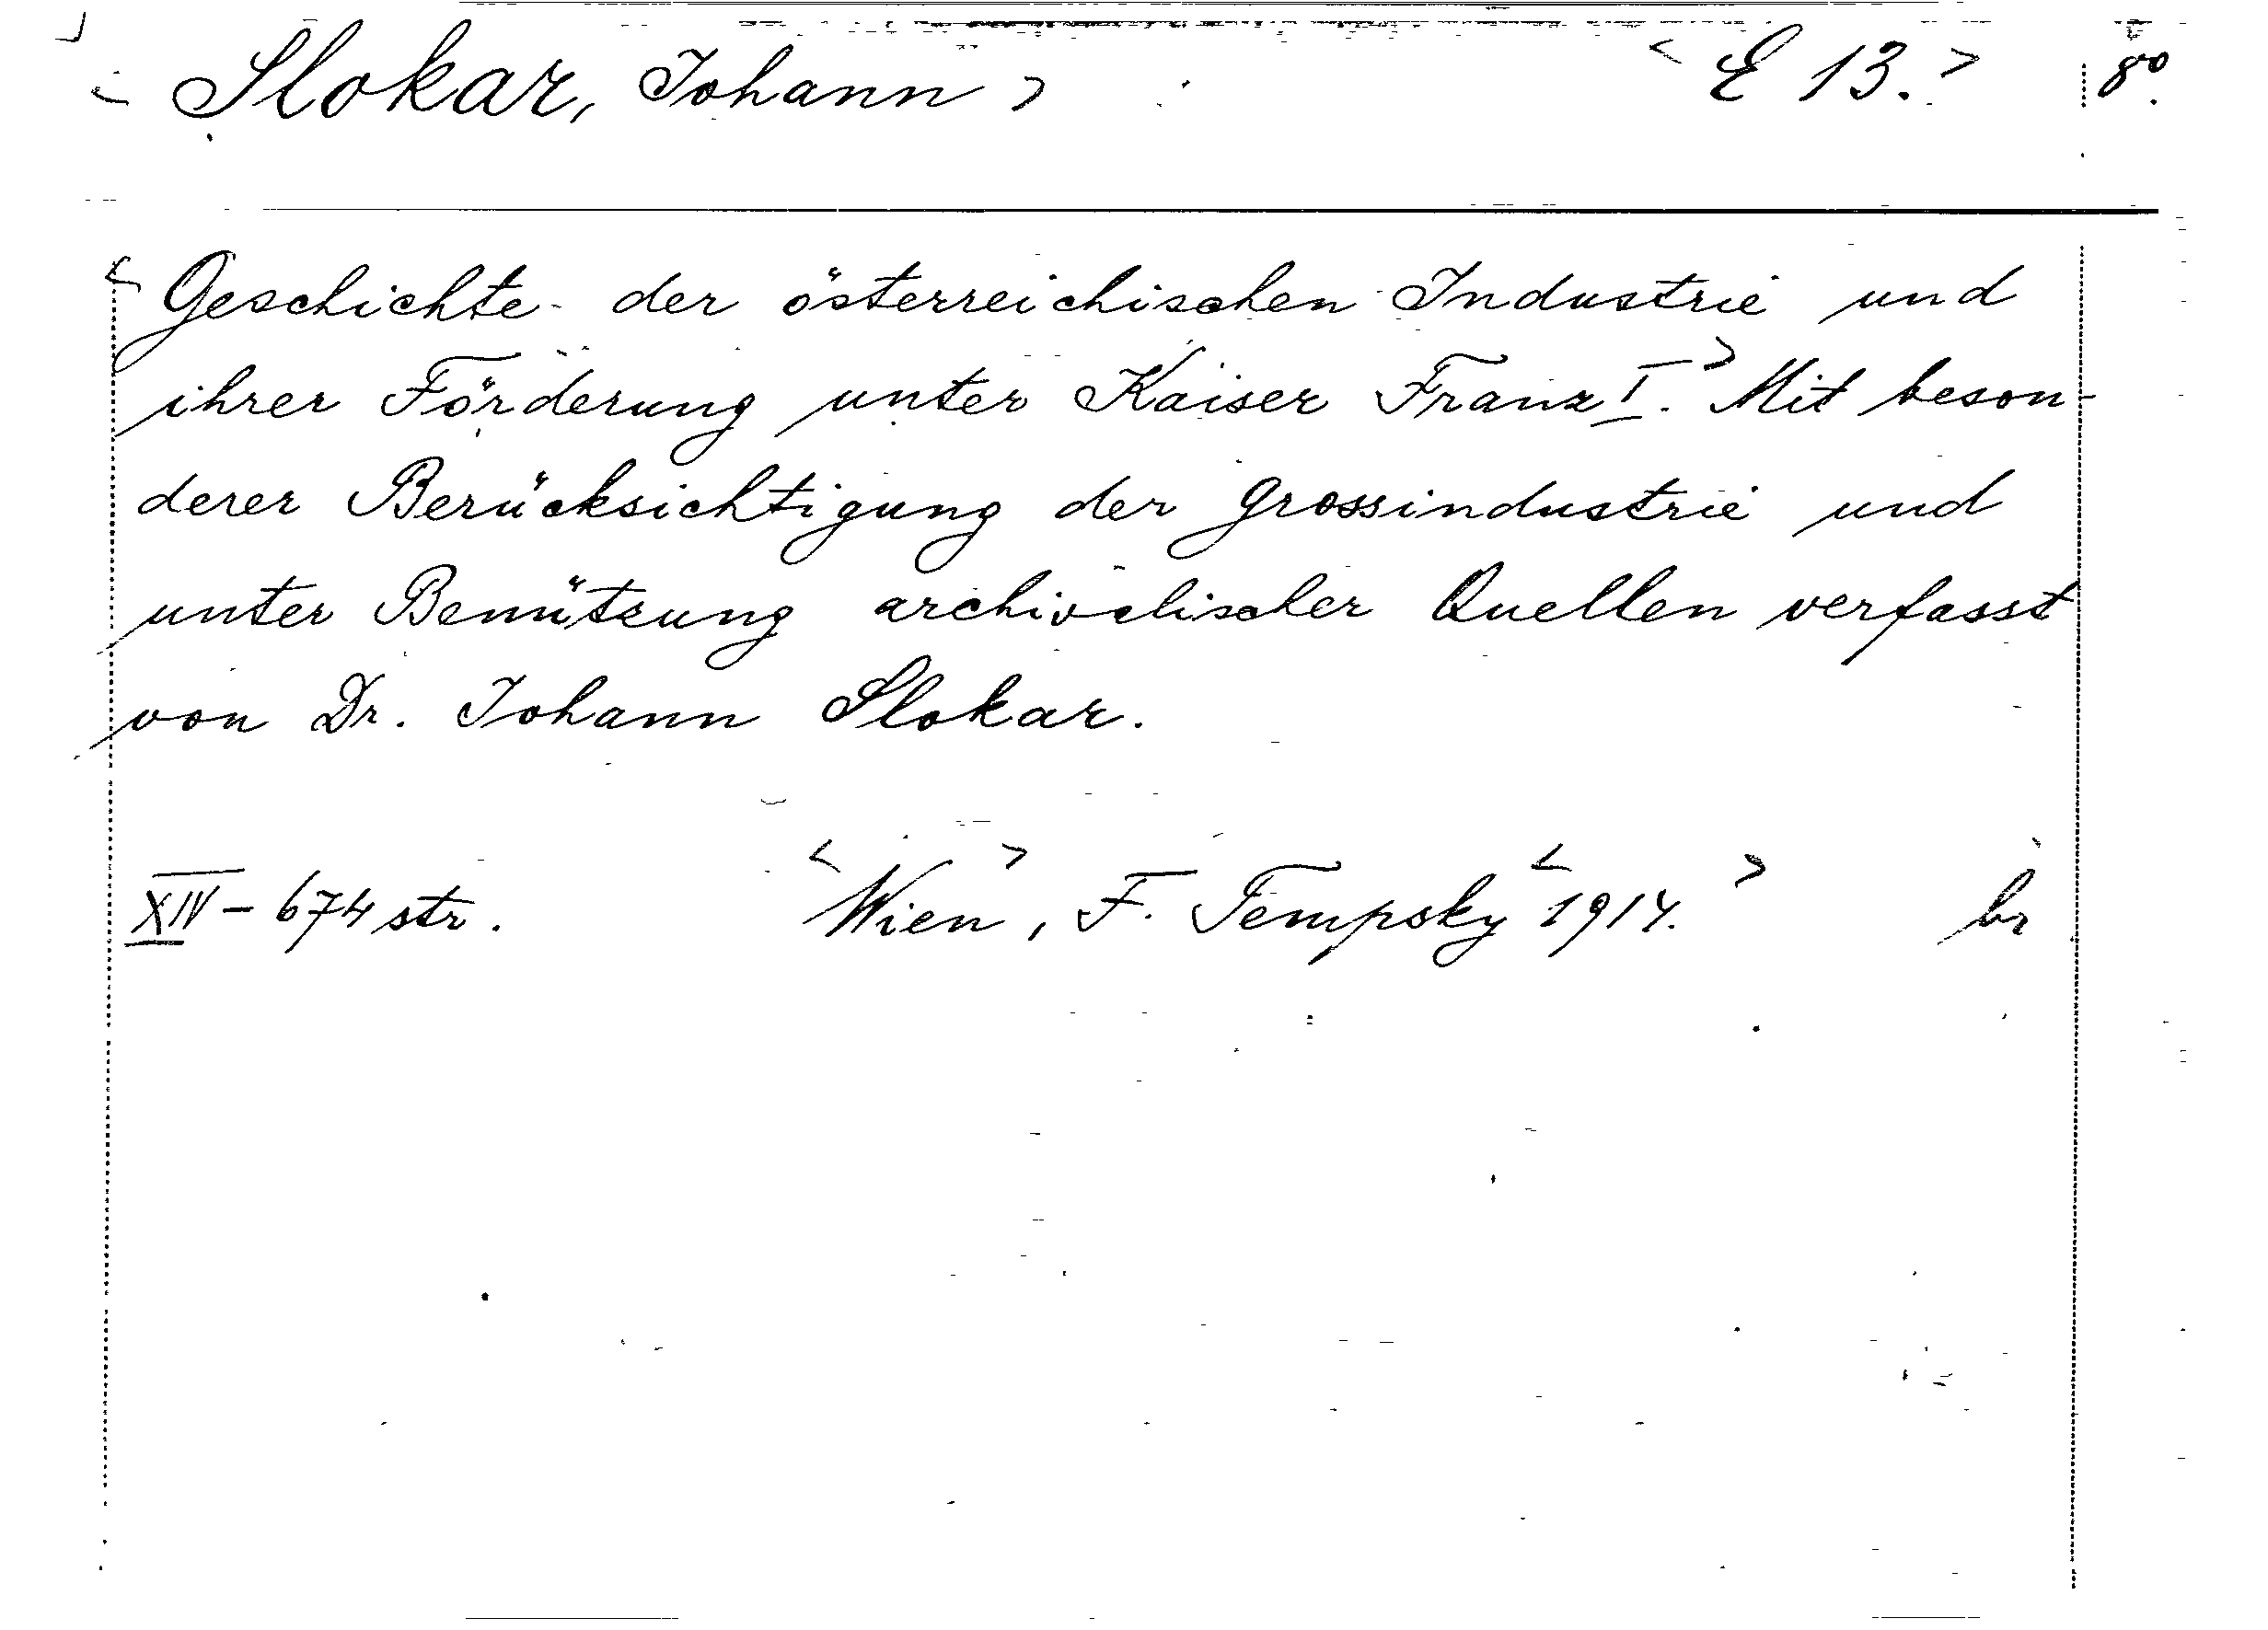 < Slokar, Johann > < E 13. > 8º
< Geschichte der österreichischen Industrie und
ihrer Förderung unter Kaiser Franz I. > Mit beson-
derer Berücksichtigung der Grossindustrie und
unter Benützung archivalischer Quellen verfasst
von Dr. Johann Slokar.
XIV - 674 str. < Wien >, F. Tempsky < 1914. > br